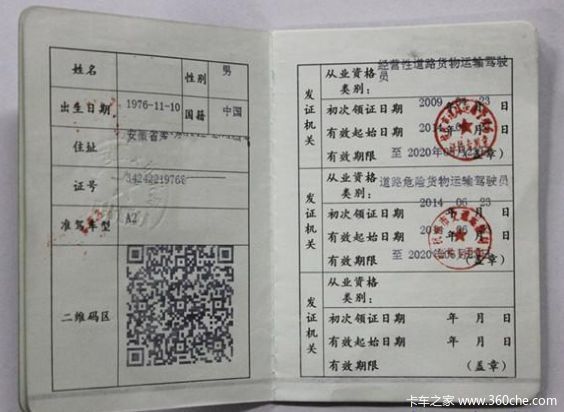 姓名
性别 男
出生日期 1976-11-10 国籍 中国
住址 安徽省
证号 34242219766
准驾车型 A2
二维码区
发证机关
从业资格类别： 经营性道路货物运输驾驶员
初次领证日期 2009 年 月 23 日
有效起始日期 2014 年 月 日
有效期限 至 2020年 （盖章）
发证机关
从业资格类别： 道路危险货物运输驾驶员
初次领证日期 2014 年 06 月 23 日
有效起始日期 年 月 日
有效期限 至 2020年 （盖章）
发证机关
从业资格类别：
初次领证日期 年 月 日
有效起始日期 年 月 日
有效期限 （盖章）
卡车之家 www.360che.com